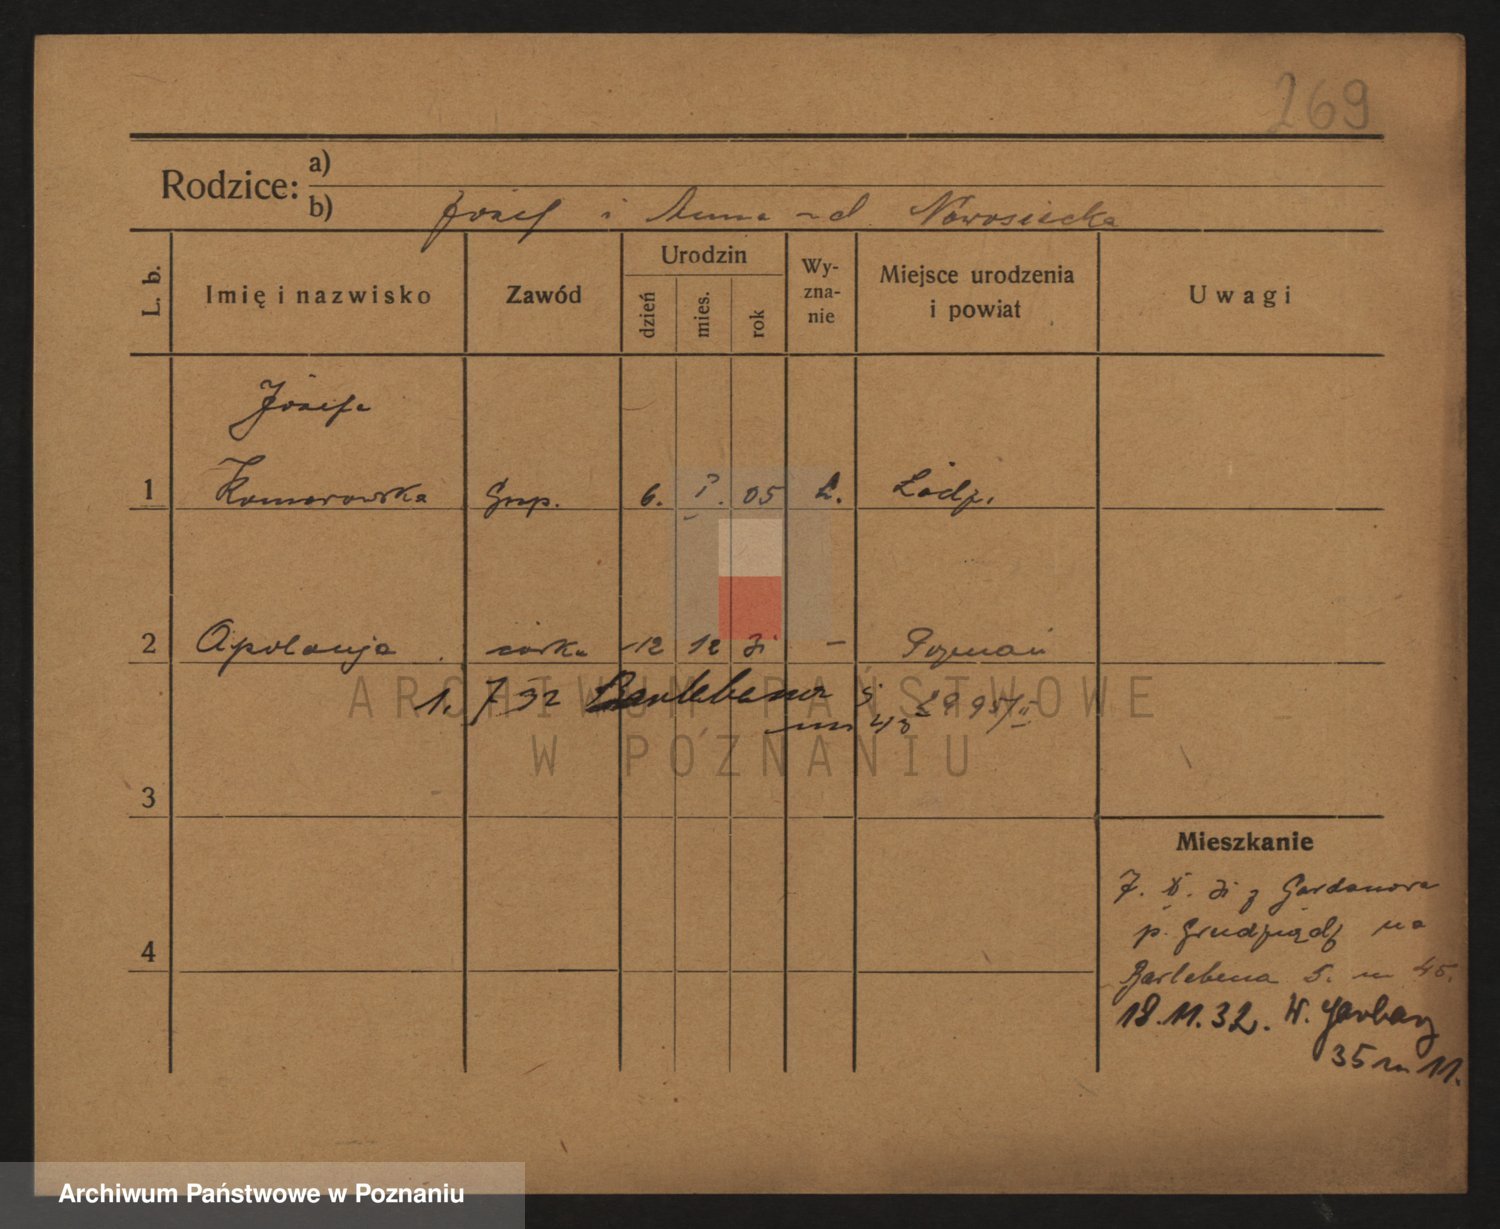 269
Rodzice: a)
b) Józef i Anna z d. Nowosiecka
L. b. Imię i nazwisko Zawód Urodzin dzień mies. rok Wyznanie Miejsce urodzenia i powiat Uwagi
Józefa
1 Komorowska Gosp. 6. I. 05 Łódź.
2 Apolonja córka 12 12 31 — Poznań
1. 7 32 Barlebena 5
m 45
ARCHIWUM PAŃSTWOWE
W POZNANIU
3
Mieszkanie
7. 31 z
p. Grudziądz na
4
Barlebena 5. m 45.
18.11.32. W. Garbary
35 m 11.
Archiwum Państwowe w Poznaniu